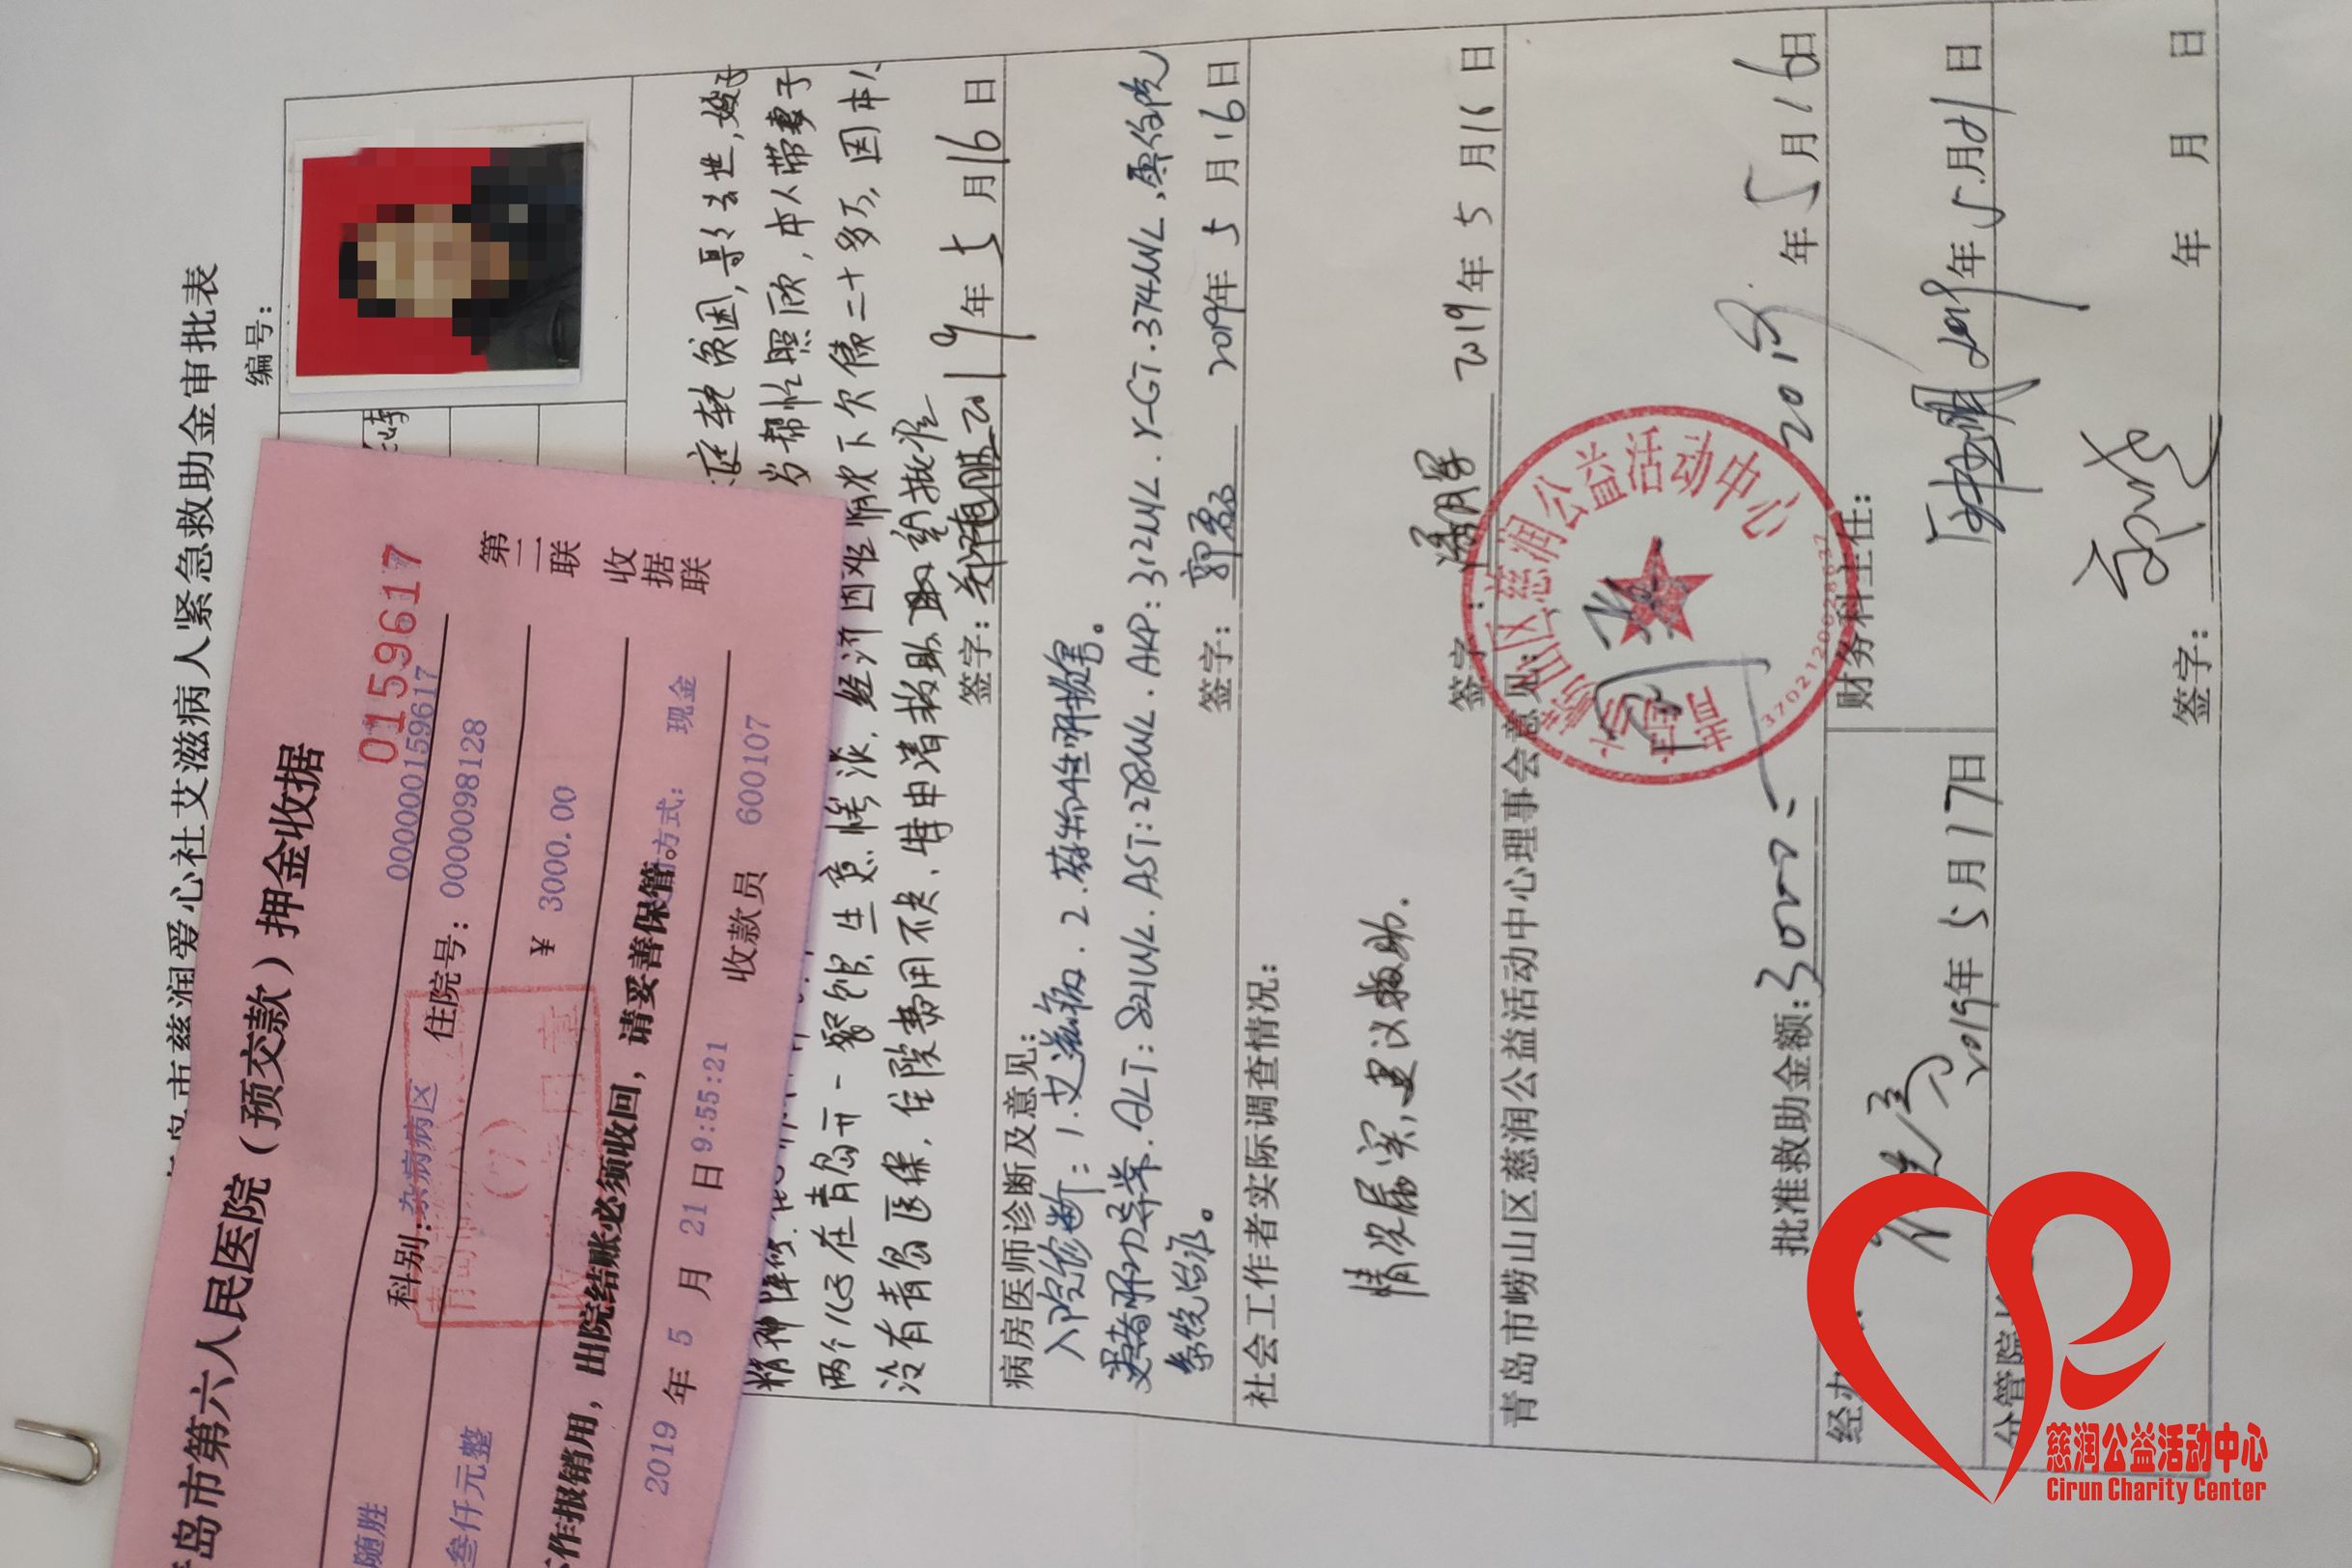 青岛市慈润爱心社艾滋病人紧急救助金审批表
编号：
岛市第六人民医院（预交款）押金收据
0159617
000000159617
随胜
科别：杂病病区
住院号：0000098128
叁仟元整
¥ 3000.00
作报销用，出院结账必须收回，请妥善保管。
方式： 现金
2019 年 5 月 21 日 9:55:21
收款员 600107
第二联
收据联
庭较贫困，哥哥去世，嫂子
岁帮忙照顾，本人带妻子
两个儿子在青岛开一餐馆，生意惨淡，经济困难，欠下欠债二十多万，因本人
没有青岛医保，住院费用不央，特申请救助，望给批准
签字： 2019年 5 月 16 日
病房医师诊断及意见：
入院诊断：1.艾滋病．2.药物性肝损害。
患者肝功异常．ALT：821U/L．AST：278U/L．AKP：312U/L．γ-GT．374U/L，需住院
系统治疗。
签字：郭磊 2019年 5 月 16 日
社会工作者实际调查情况：
情况属实，足以救助．
签字： 2019 年 5 月 16 日
青岛市崂山区慈润公益活动中心理事会意见：
青岛市崂山区慈润公益活动中心
批准救助金额：3000－
2019 年 5 月 16 日
经办
2019年 5 月 17 日
财务科主任：
2019年 5 月 21 日
分管院长
签字：
年 月 日
慈润公益活动中心
Cirun Charity Center